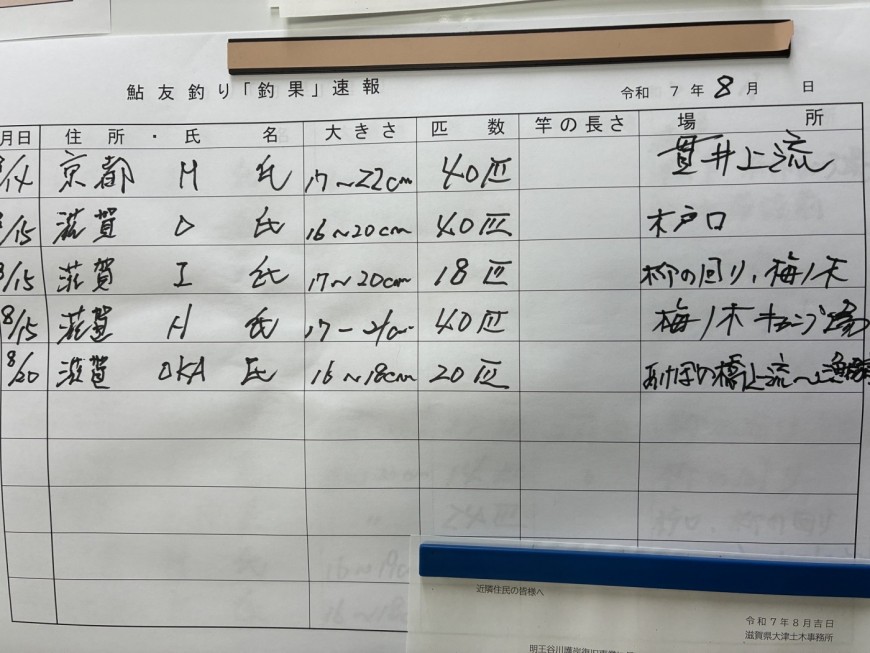 鮎友釣り「釣果」速報
令和 7年 8月 日
月日 住所・氏名 大きさ 匹数 竿の長さ 場所
8/14 京都 H 氏 17~22cm 40匹 貫井上流
8/15 滋賀 O 氏 16~20cm 40匹 木戸口
8/15 滋賀 I 氏 17~20cm 18匹 柳の回り、梅ノ木
8/15 滋賀 H 氏 17-21cm 40匹 梅ノ木キャンプ場
8/20 滋賀 OKA 氏 16~18cm 20匹 あけぼの橋上流~
近隣住民の皆様へ
令和7年8月吉日
滋賀県大津土木事務所